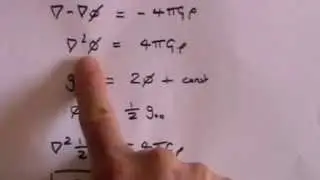 ∇-∇∅ = -4πGρ
∇²∅ = 4πGρ
g = 2∅ + const
½ g₀₀
∇² ½ = 4πGρ